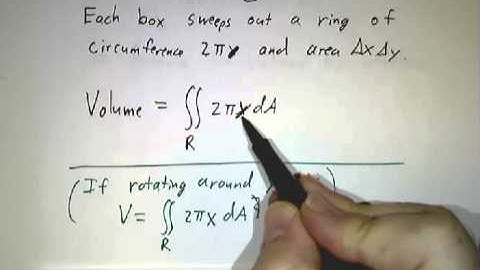 Each box sweeps out a ring of
circumference 2πy and area ΔxΔy.
Volume = ∬_R 2πy dA
(If rotating around
V = ∬_R 2πx dA